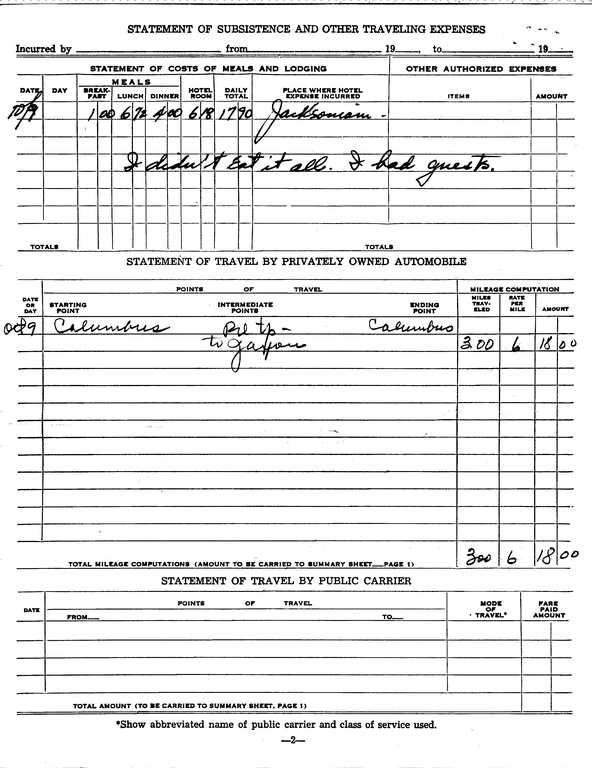 STATEMENT OF SUBSISTENCE AND OTHER TRAVELING EXPENSES
Incurred by from 19 , to 19
STATEMENT OF COSTS OF MEALS AND LODGING OTHER AUTHORIZED EXPENSES
DATE DAY MEALS BREAK-FAST LUNCH DINNER HOTEL ROOM DAILY TOTAL PLACE WHERE HOTEL EXPENSE INCURRED ITEMS AMOUNT
10/9 1 00 6 72 4 00 6 18 17 90 Jacksonian -
I didn't eat it all. I had guests.
TOTALS TOTALS
STATEMENT OF TRAVEL BY PRIVATELY OWNED AUTOMOBILE
POINTS OF TRAVEL MILEAGE COMPUTATION
DATE OR DAY STARTING POINT INTERMEDIATE POINTS ENDING POINT MILES TRAV-ELED RATE PER MILE AMOUNT
Oct 9 Columbus Columbus
to 300 6 18 00
TOTAL MILEAGE COMPUTATIONS (AMOUNT TO BE CARRIED TO SUMMARY SHEET—PAGE 1) 300 6 18 00
STATEMENT OF TRAVEL BY PUBLIC CARRIER
DATE POINTS OF TRAVEL MODE OF TRAVEL* FARE PAID AMOUNT
FROM TO
TOTAL AMOUNT (TO BE CARRIED TO SUMMARY SHEET, PAGE 1)
*Show abbreviated name of public carrier and class of service used.
—2—